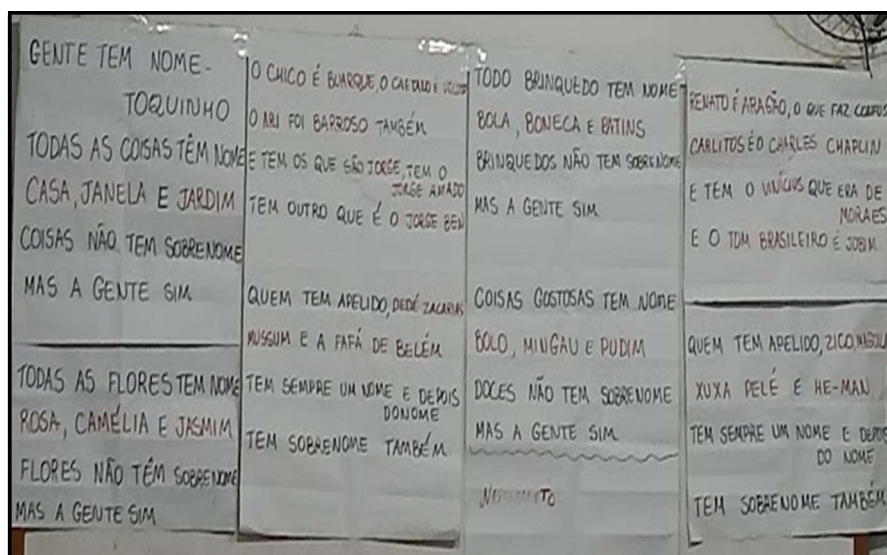 GENTE TEM NOME-
TOQUINHO
TODAS AS COISAS TÊM NOME
CASA, JANELA E JARDIM
COISAS NÃO TEM SOBRENOME
MAS A GENTE SIM
TODAS AS FLORES TEM NOME
ROSA, CAMÉLIA E JASMIM
FLORES NÃO TÊM SOBRENOME
MAS A GENTE SIM
O CHICO É BUARQUE, O CAETANO É
O ARI FOI BARROSO TAMBÉM
E TEM OS QUE SÃO JORGE, TEM O
JORGE AMADO
TEM OUTRO QUE É O JORGE BEN
QUEM TEM APELIDO, DEDÉ ZACARIAS
MUSSUM E A FAFÁ DE BELÉM
TEM SEMPRE UM NOME E DEPOIS
DO NOME
TEM SOBRENOME TAMBÉM
TODO BRINQUEDO TEM NOME
BOLA, BONECA E PATINS
BRINQUEDOS NÃO TEM SOBRENOME
MAS A GENTE SIM
COISAS GOSTOSAS TEM NOME
BOLO, MINGAU E PUDIM
DOCES NÃO TEM SOBRENOME
MAS A GENTE SIM
RENATO É ARAGÃO, O QUE FAZ
CARLITOS É O CHARLES CHAPLIN
E TEM O VINÍCIUS QUE ERA DE
MORAES
E O TOM BRASILEIRO É JOBIM
QUEM TEM APELIDO, ZICO,
XUXA PELÉ E HE-MAN
TEM SEMPRE UM NOME E DEPOIS
DO NOME
TEM SOBRENOME TAMBÉM